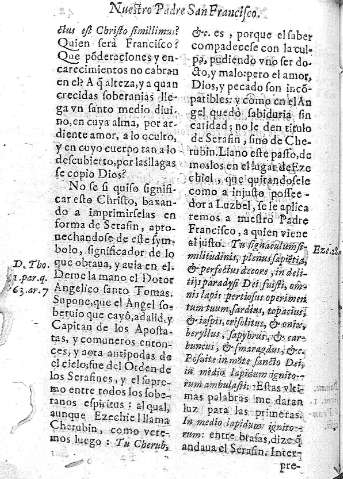 Nuestro Padre San Francisco.
ctus est Christo simillimus?
Quien serà Francisco?
Que põderaciones y en-
carecimientos no cabran
en el? A q̃ alteza, y a quan
crecidas soberanias lle-
ga vn santo medio diui-
no, en cuya alma, por ar-
diente amor, a lo oculto,
y en cuyo cuerpo tan a lo
descubierto, por las llagas
se copio Dios?
No se si quiso signifi-
car este Christo, baxan-
do a imprimirselas en
forma de Serafin, apro-
uechandose de este sym-
bolo, significador de lo
que obraua, y auia en el.
Deme la mano el Dotor
Angelico santo Tomas.
Supone, que el Angel so-
beruio que cayò, adalid, y
Capitan de los Aposta-
tas, y comuneros enton-
ces, y aora antipodas de
el cielo, fue del Orden de
los Serafines, y el supre-
mo entre todos los sobe-
ranos espiritus: al qual,
aunque Ezechiel llama
Cherubin, como vere-
mos luego: Tu Cherub,
D. Tho.
1. par. q.
63. ar. 7
&c. es, porque el saber
compadecese con la cul-
pa, pudiendo vno ser do-
cto, y malo: pero el amor,
Dios, y pecado son incõ-
patibles: y como en el An
gel quedò sabiduria sin
caridad; no le den titulo
de Serafin, sino de Che-
rubin. Llano este passo, de
moslos en el lugar de Eze
chiel, que quitandosele
como a injusto possee-
dor a Luzbel, se le aplica
remos a nuestro Padre
Francisco, a quien viene
al justo. Tu signaculum si-
militudinis, plenus sapiẽtia,
& perfectus decore, in deli-
tijs paradysi Dei fuisti, om-
nis lapis pretiosus operimen
tum tuum, sardius, topacius,
& iaspis, crisolitus, & onix,
beryllus, sapbyrus, & car-
buncus, & smaragdus, &c.
Posui te in monte sancto Dei,
in medio lapidum ignito-
rum ambulasti: Estas vlti
mas palabras me daran
luz para las primeras.
In medio lapidum ignito-
rum: entre brasas, dize q̃
andaua el Serafin. Inter
pre-
Eze. 28.